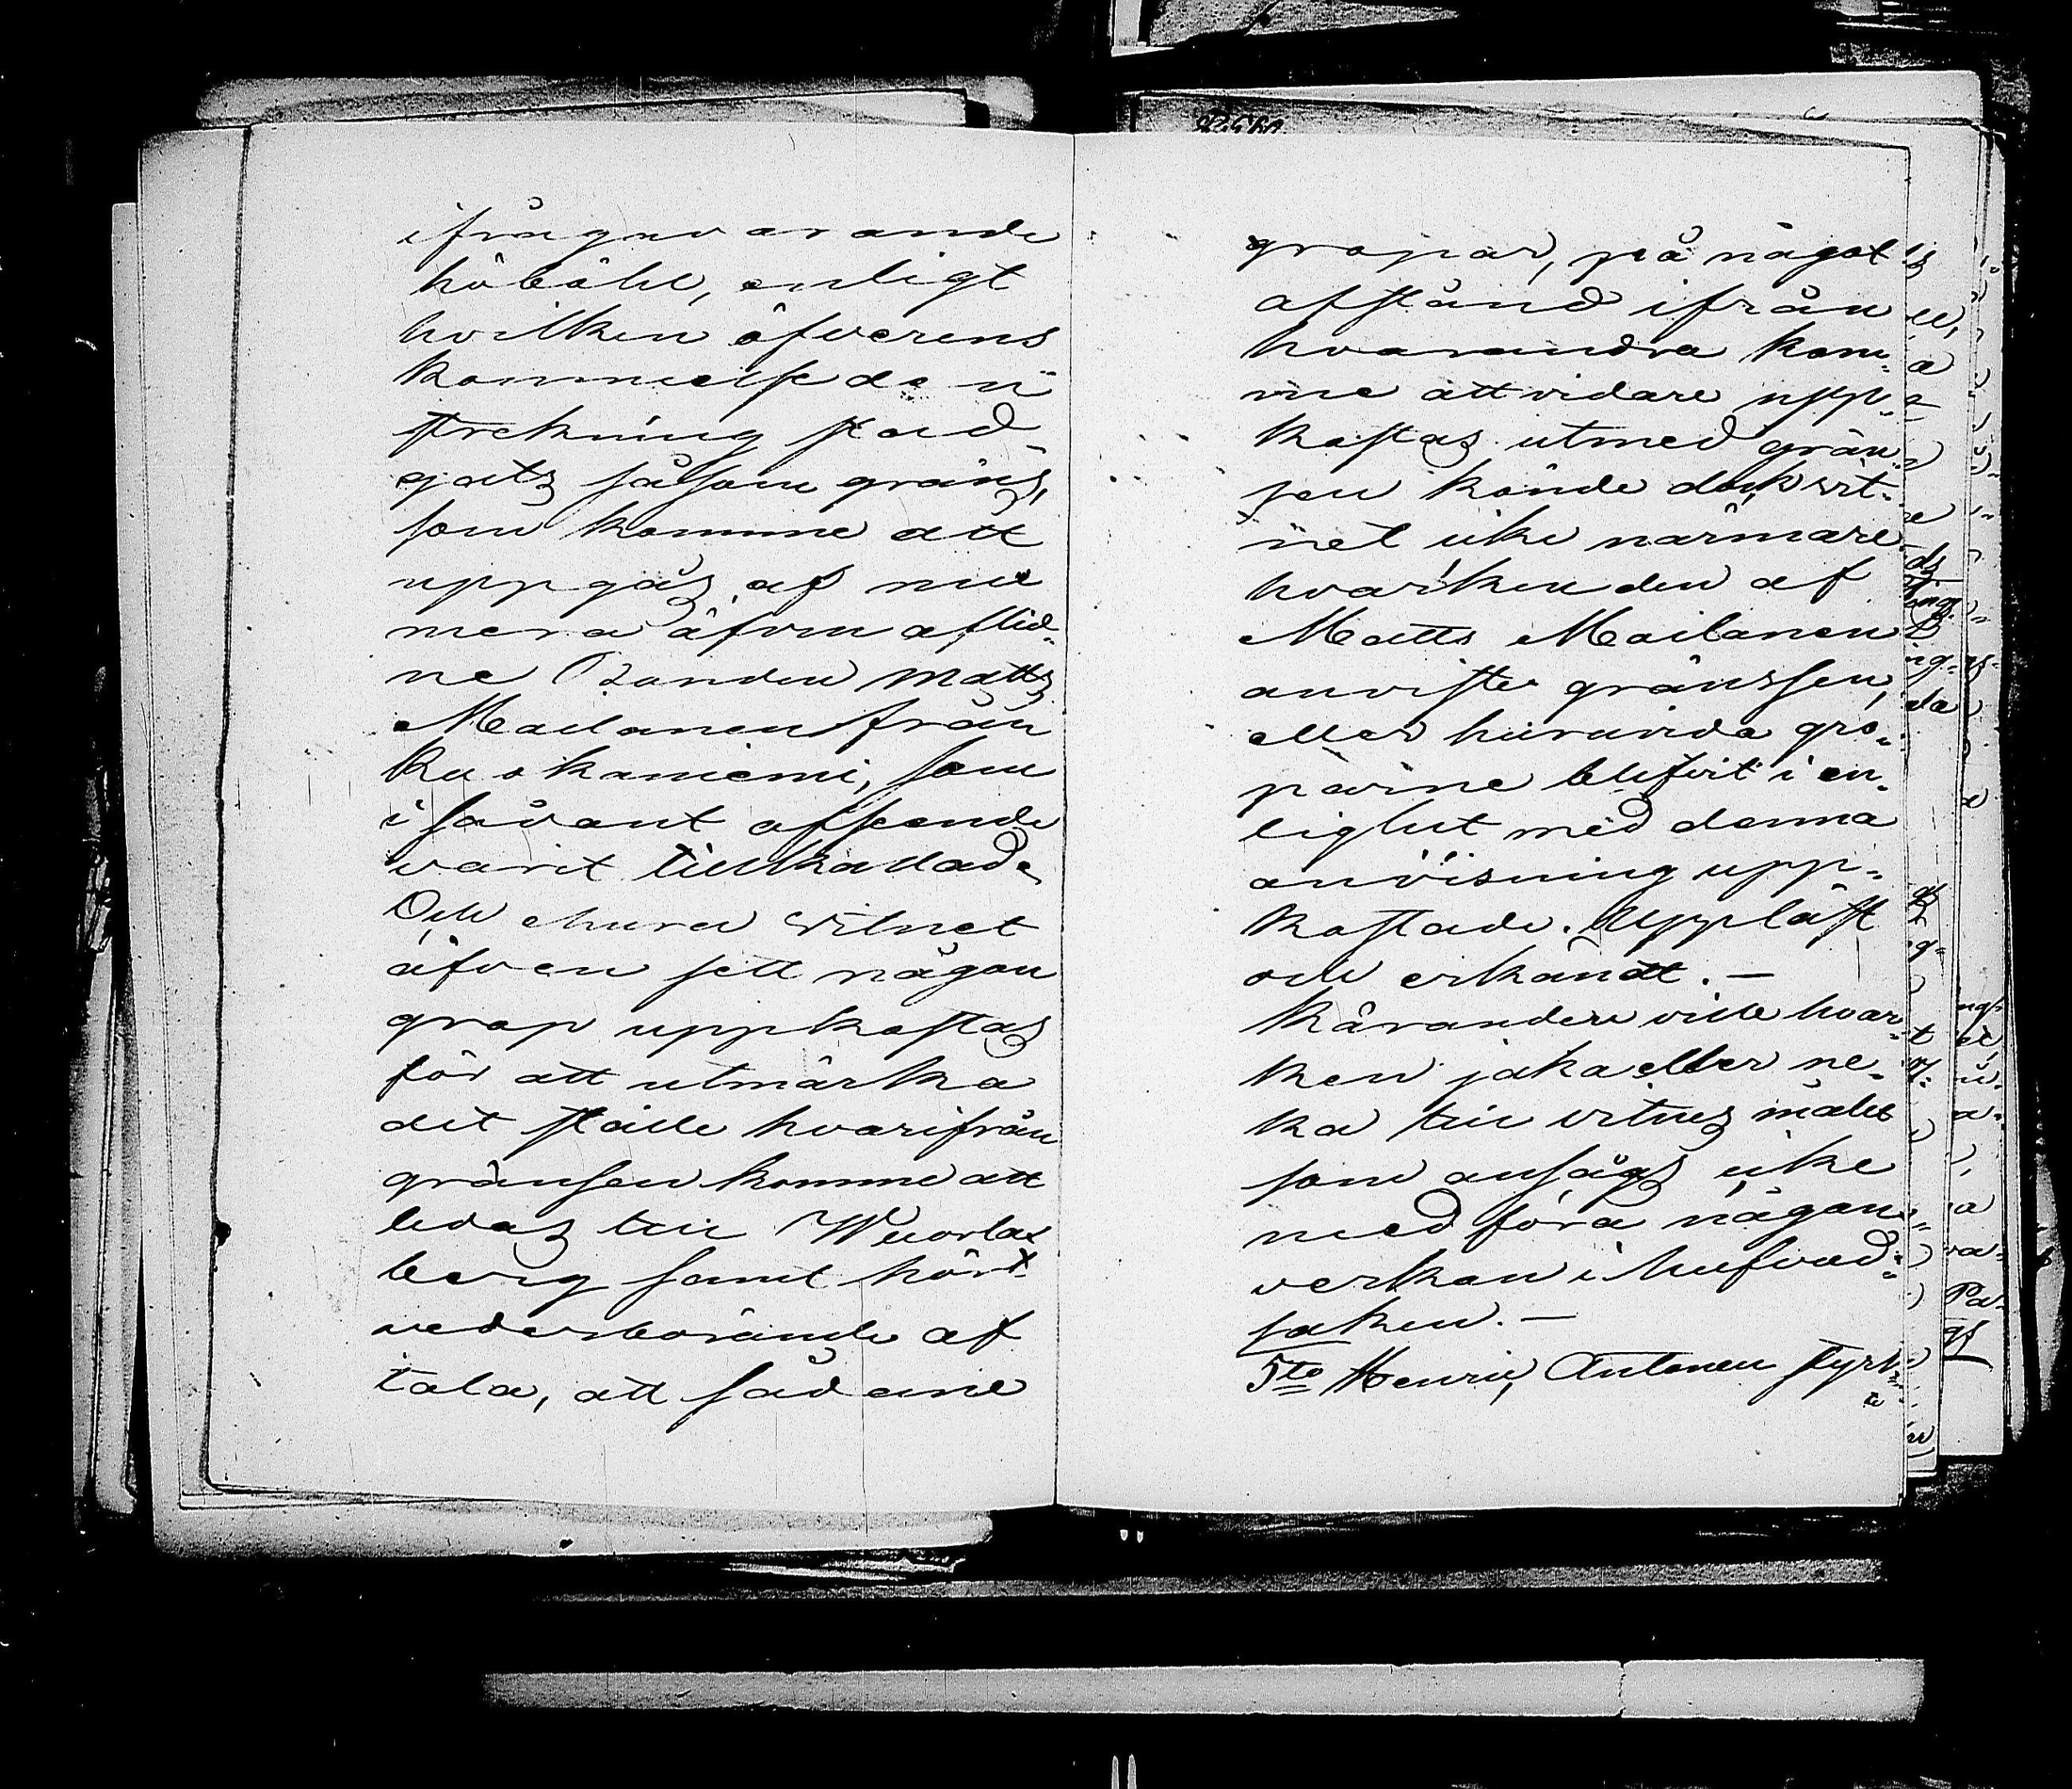 ifrågavarande
höböhle, enligt
hvilken öfverens
kommelse de
strekning stad-
gats såsom gräns,
som komme att
uppgås af nu
mera äfven aflid-
ne Bonden Matts
Mailanen från
Ruokoniemi, som
i sådant afseende
varit tillkallad.
Och ehuru vitnet
äfven sett någon
grop uppkastas
för att utmärka
det ställe hvarifrån
gränsen komme att
ledas till Wuorla
berg samt hört
vederbörande af
tala, att sådane
gropar, på något
afstånd ifrån
hvarandra kom-
me att vidare upp-
kastas utmed grän-
sen kände dock vit-
net icke närmare
hvarken den af
Matts Mailanen
anviste gränssen,
eller huruvida gro-
parne blifvit i en-
lighet med denna
anvisning upp-
kastade. Uppläst
och erkändt. —
Kärandere ville hvar-
ken jaka eller ne-
ka till vitnes målet
som ansågs icke
medföra någon
verkan i hufvud-
saken. —
5to Henric Antonen styrk-
te